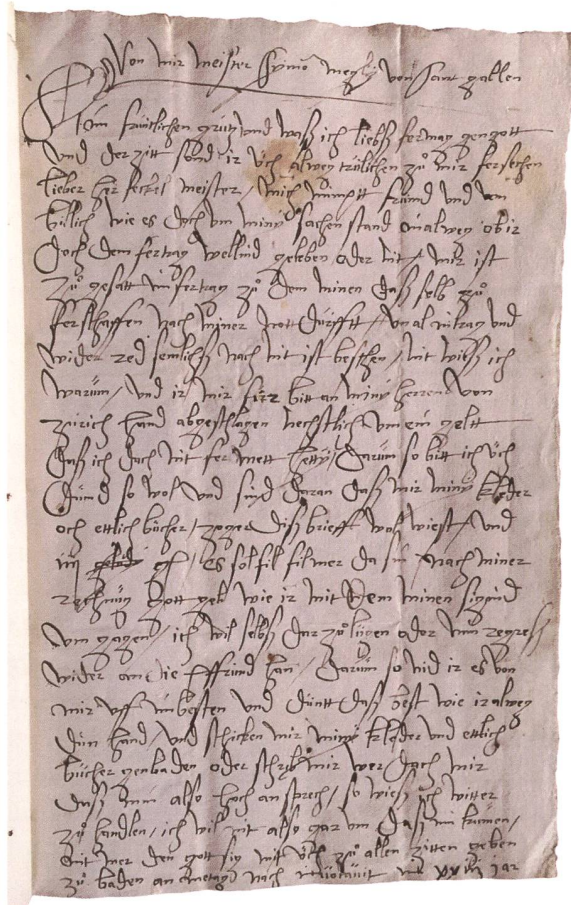 Von mir meister Symō megly von sant gallen
Min früntlichen grůtz und waß ich liebß fermag gen gott
und der zitt sond ir üch alweg trülichen zů mir fersechen
lieber her seckel meister / mich nimptt frümd und un
billich wie es doch um miny sachen stand in alweg ob ir
doch dem fertrag wellind geleben oder nit / mir ist
zů gesatt im fertrag zů dem minen daß selb zů
ferschaffen nach miner nott dürfftt / on al intrag und
wider red semlichß nach nit ist beschen / nit weiß ich
warum / und ir mir für bitt an miny herren von
zürich hand abgeschlagen nechstlich um ein geltt
daß ich doch nit fer mett hetty / darum so bitt ich üch
dünd so wol und sind daran daß mir miny kleder
och ettlich bücher / zöger diß brieff wol wiest / und
iiij gl / es sol fil mer da sin / nach miner
rechnung gott geb wie ir mit dem minen sigind
um gagen / ich wil selbß dar zů lůgen oder min regreß
wider an die fründ han / darum so nid ir es von
mir uff im besten und düntt daß best wie ir alweg
dün hand / und schicken mir miny kleder und ettlich
bücher gen baden oder schrib mir wer doch mir
daß min also hoch an sprech / so wiess ich witter
zů handlen / ich wil nit also gar um daß min kumen /
nit mer den gott sig mit üch zů allen zitten geben
zů baden an metag nach jar